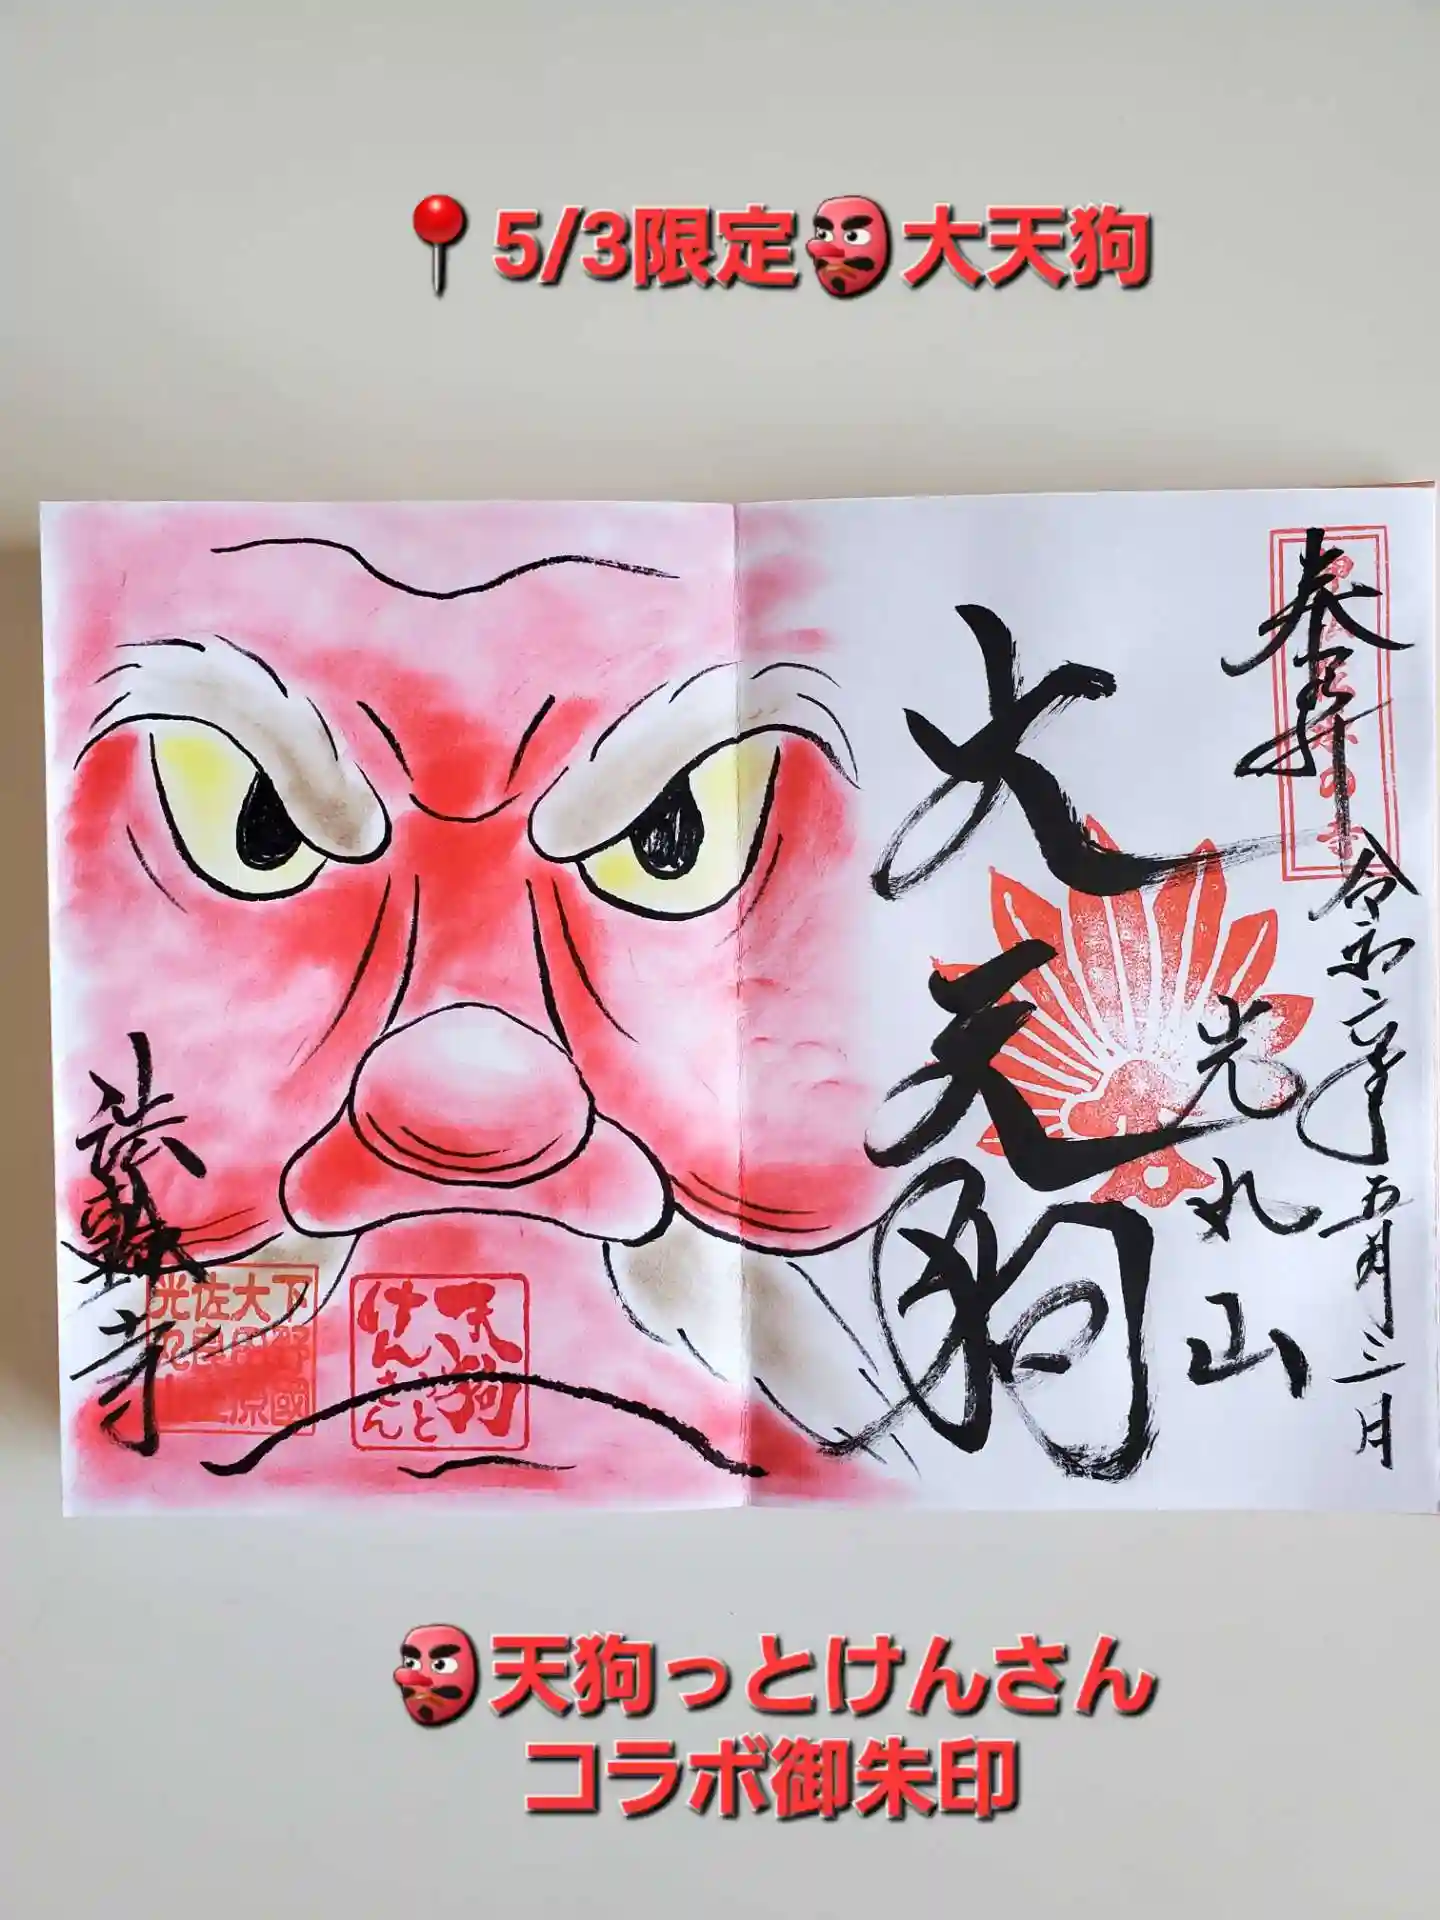 5/3限定👺大天狗
奉拝
令和六年五月三日
大天狗
光丸山
法輪寺
下野國
大田原
佐良土
光丸山
天狗
っと
けんさん
👺天狗っとけんさん
コラボ御朱印